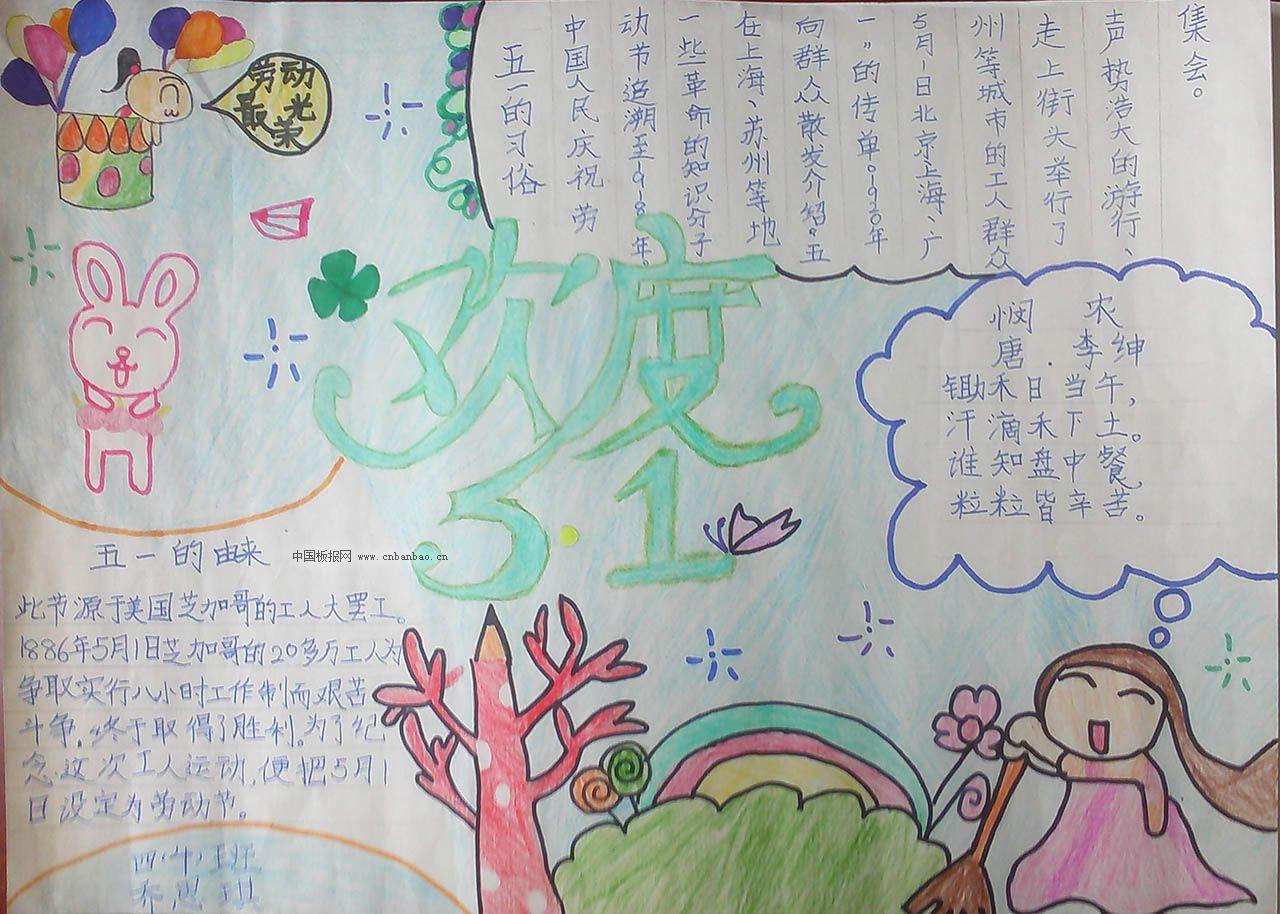 劳动
最光
荣
五一的习俗
中国人民庆祝劳
动节追溯至1918年。
一些革命的知识分子
在上海、苏州等地
向群众散发介绍“五
一”的传单。1920年
5月1日北京上海、广
州等城市的工人群众
走上街头举行了
声势浩大的游行、
集会。
欢度
5.1
悯 农
唐．李绅
锄禾日当午，
汗滴禾下土。
谁知盘中餐，
粒粒皆辛苦。
五一的由来
中国板报网 www.cnbanbao.cn
此节源于美国芝加哥的工人大罢工。
1886年5月1日芝加哥的20多万工人为
争取实行八小时工作制而艰苦
斗争，终于取得了胜利。为了纪
念这次工人运动，便把5月1
日设定为劳动节。
班
乔思琪